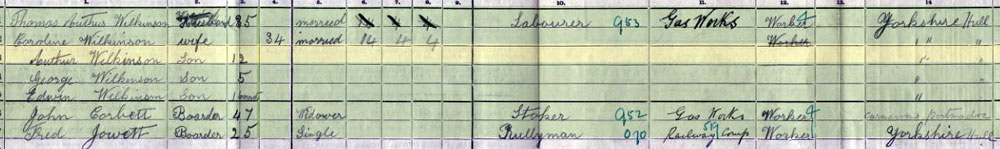 10. 11. 12. 13. 14
Thomas Arthur Wilkinson Husband 35 married Labourer 953 Gas Works Worker Yorkshire Hull
Caroline Wilkinson wife 34 married 14 4 4 Worker " "
Arthur Wilkinson Son 12 " "
George Wilkinson Son 5 " "
Edwin Wilkinson Son "
John Corbett Boarder 47 Widower Stoker 952 Gas Works Worker
Fred Jowett Boarder 25 Single Rullyman 070 Railway Comp Worker Yorkshire Hull